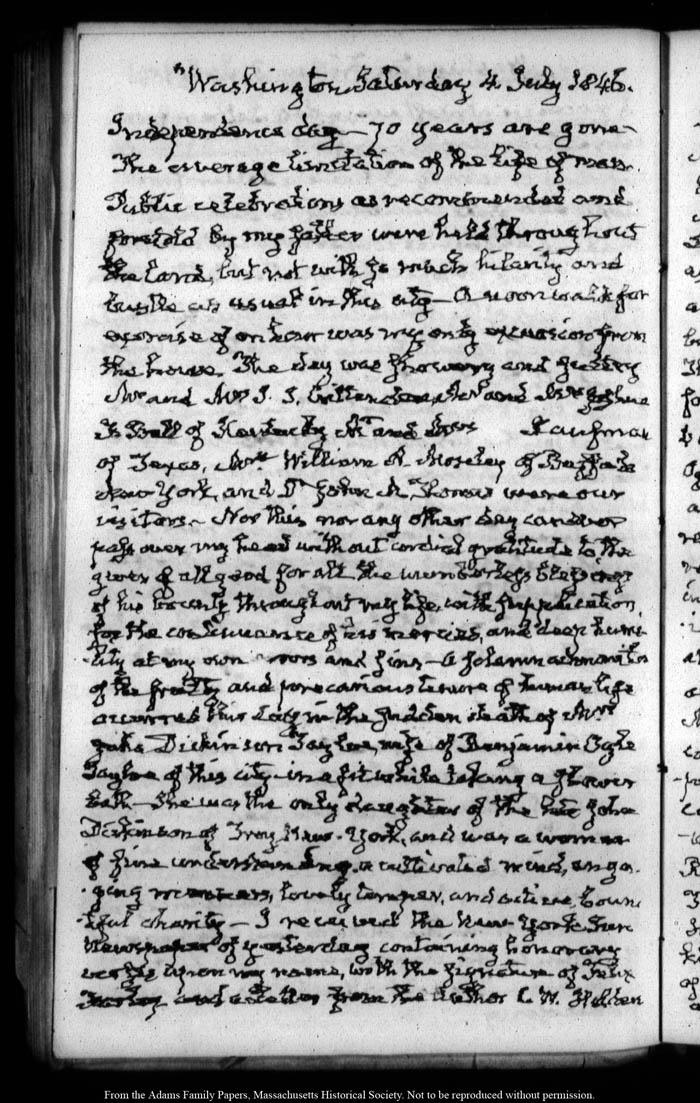 Washington Saturday 4 July 1846.
Independence day — 70 years are gone —
The average limitation of the life of man.
Public celebrations as recommended and
foretold by my father were held throughout
the land, but not with so much hilarity and
bustle as usual in this city — A noon walk for
exercise of an hour was my only excursion from
the house. The day was showery and
Mr and Mrs J. J. Crittenden, Mr and Mrs Joshua
F. Bell of Kentucky Mr and Mrs Kaufman
of Texas, Mrs William A. Moseley of Buffalo
New York, and Dr John M. Thomas were our
visitors. — Nor this nor any other day can ever
pass over my head without cordial gratitude to the
giver of all good for all the numberless blessings
of his bounty throughout my life, with supplication
for the continuance of his mercies, and deep humi-
lity at my own errors and sins — A solemn admonition
of the frailty and precarious tenure of human life
occurred this day in the sudden death of Mrs
Julia Dickinson Tayloe, wife of Benjamin Ogle
Tayloe of this city in a fit while taking a shower
bath — She was the only daughter of the late John
Dickinson of Troy New-York, and was a woman
of fine understanding, a cultivated mind, enga-
ging manners, lovely temper, and active boun-
tiful charity — I received the New-York Sun
Newspaper of yesterday containing honorary
verses upon my name, with the signature of
and a letter from the author C. W. Holden